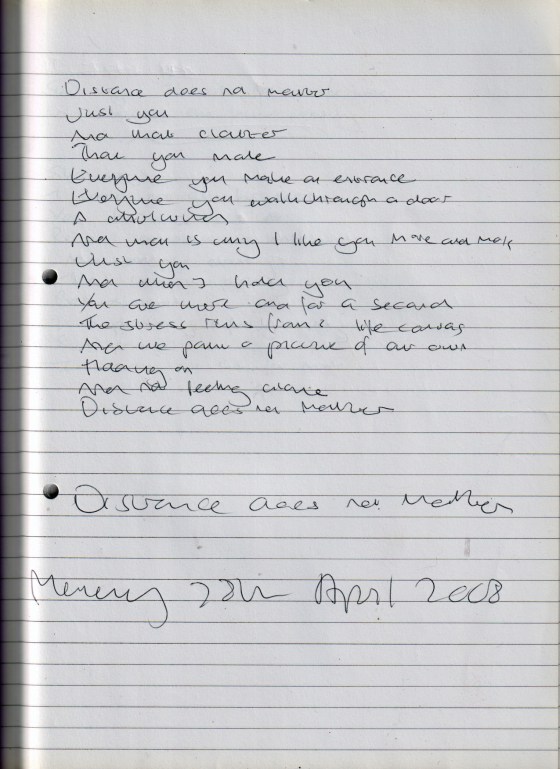 Distance does not matter
Just you
And that clatter
That you make
Everytime you make an entrance
Everytime you walk through a door
A
And that is why I like you more and more
Just you
And when I hold you
You are mine and for a second
The stress runs from life canvas
And we paint a picture of our own
Holding on
And not feeling alone
Distance does not matter
Distance does not matter
28th April 2008